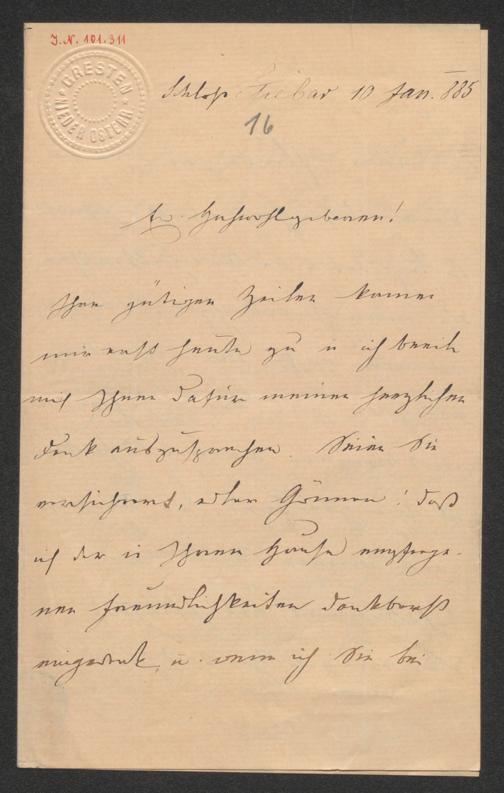 J. N. 101.311
GRESTEN
NIEDER OSTERR.
Schloß 10 Jan. 885
16
Ew. Hochwohlgeboren!
Ihre gütigen Zeilen kamen
mir erst heute zu u ich beeile
mich Ihnen dafür meinen herzlichen
Dank auszusprechen. Seien Sie
versichert, edler Gönner! daß
ich der in Ihrem Hause empfange-
nen Freundlichkeiten dankbarst
eingedenk, u. wenn ich Sie bei